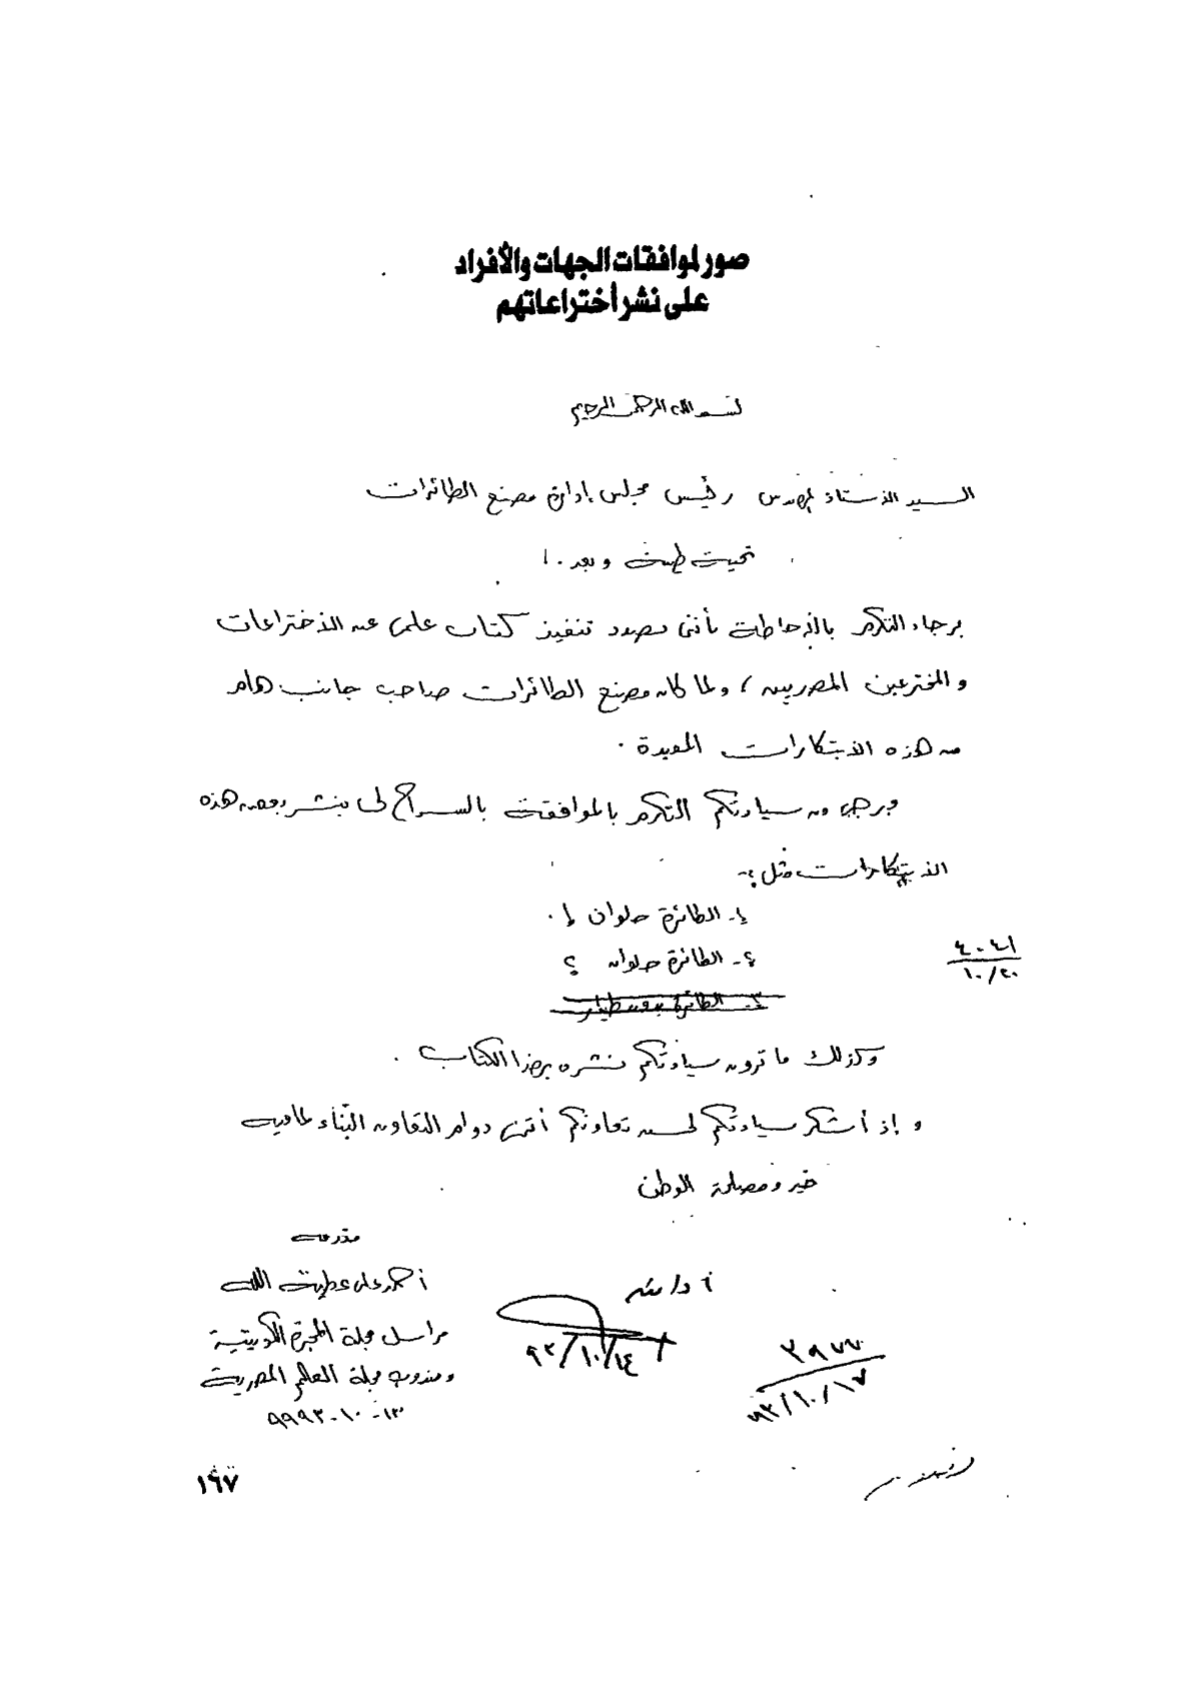 صور لموافقات الجهات والأفراد
على نشر أختراعاتهم
بسم الله الرحمن الرحيم
السيد الأستاذ المهندس رئيس مجلس إدارة مصنع الطائرات
تحية طيبة وبعد . !
برجاء التكرم بالإحاطة بأننى بصدد تنفيذ كتاب علمى عن الاختراعات
والمخترعين المصريين ، ولما كان مصنع الطائرات صاحب جانب هام
من هذه الابتكارات المفيدة .
نرجو من سيادتكم التكرم بالموافقة بالسماح لى بنشر بعض هذه
الابتكارات مثل :-
١- الطائرة حلوان ١ .
٢- الطائرة حلوان ٢
٣- الطائرة
١٠/٢٠
وكذلك ما ترون سيادتكم نشره بهذا الكتاب .
وإذ أشكر سيادتكم لحسن تعاونكم أتمنى دوام التعاون البنّاء لما فيه
خير ومصلحة الوطن
مقدمه
أحمد على عطية الله
مراسل مجلة المجرة الكويتية
ومندوب مجلة العالم المصرية
٩٢/١٠/١٤
٩٢/١٠/١٧
١٦٧